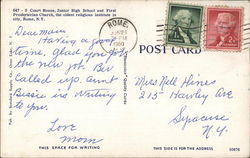 647 - O Court House, Junior High School and First
Presbyterian Church, the oldest religious institute in
city, Rome, N.Y.
ROME,
1960
POST CARD
Dear Mom
Having a good
time, glad you got
the new pt. Bill
called up. Aunt
Bessie is writing
to you.
Love
Mom
Mrs Nell Hines
215 Hawley Ave
Syracuse
N.Y.
THIS SPACE FOR WRITING
THIS SIDE IS FOR ADDRESS